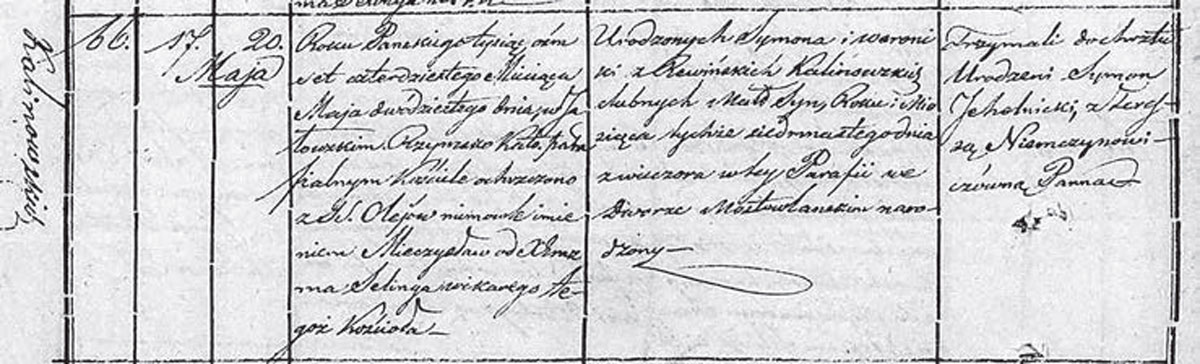 Kalinowskich
66. 17. 20.
Maja
Roku Panskiego tysiąc ośm
set czterdziestego Miesiąca
Maja dwudziestego dnia, w Ja
łowskim Rzymsko Kato. para
fialnym Kościele ochrzczono
z SS. Olejów niemowle imie
niem Mieczysław od X. Eraz
ma Selinga wikarego te-
goż Kościoła
Urodzonych Symona i weroni
ki z Rewińskich Kalinowskich
ślubnych Małż Syn, Roku i Mie
siąca tychże siedmnastego dnia
z wieczora w tey Parafii we
Dworze Mostowlanskim naro-
dzony
Trzymali do chrztu
Urodzeni Symon
z Teres-
są Niemczynowi-
czówną Panną